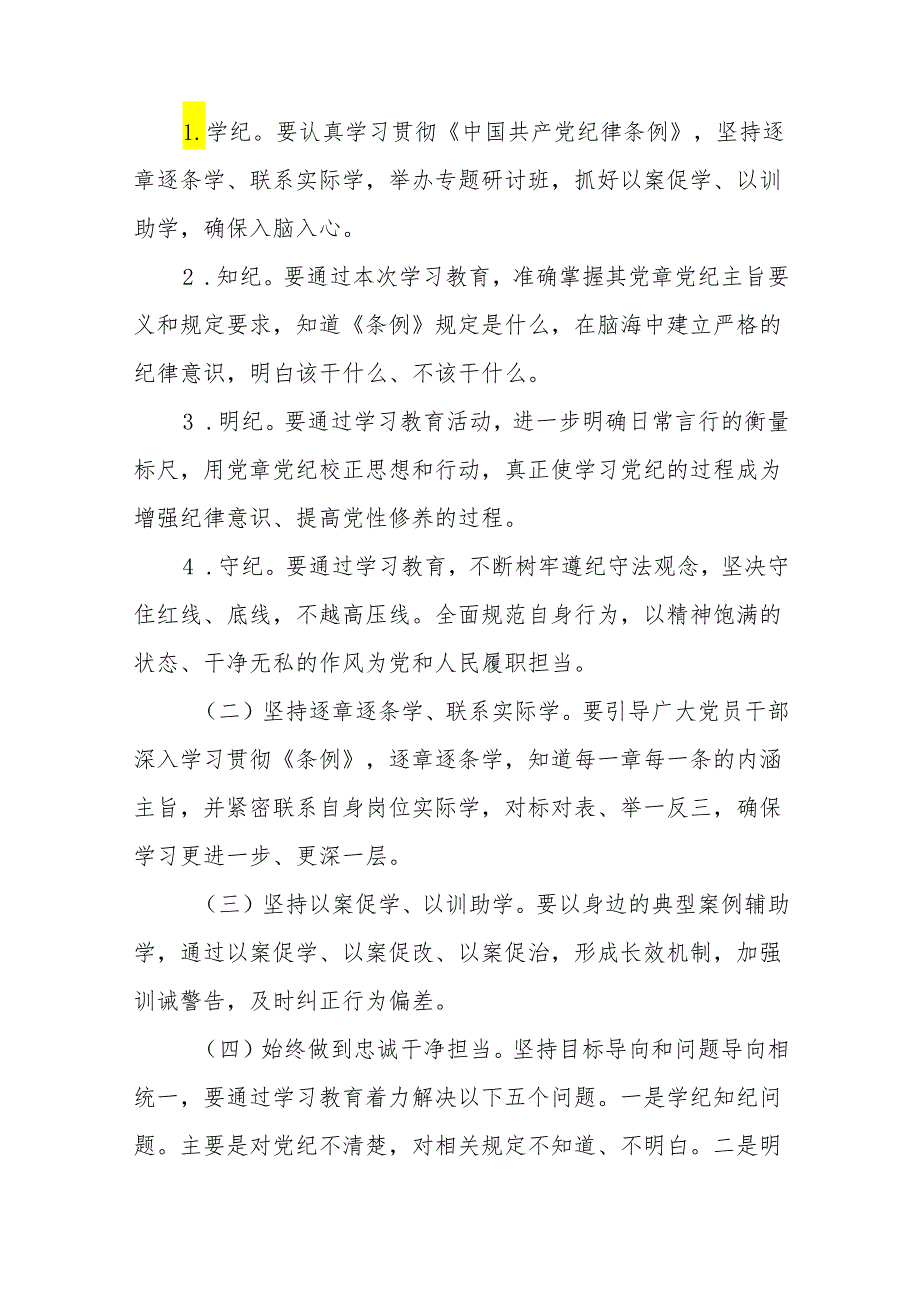 1.学纪。要认真学习贯彻《中国共产党纪律条例》，坚持逐
章逐条学、联系实际学，举办专题研讨班，抓好以案促学、以训
助学，确保入脑入心。
2.知纪。要通过本次学习教育，准确掌握其党章党纪主旨要
义和规定要求，知道《条例》规定是什么，在脑海中建立严格的
纪律意识，明白该干什么、不该干什么。
3.明纪。要通过学习教育活动，进一步明确日常言行的衡量
标尺，用党章党纪校正思想和行动，真正使学习党纪的过程成为
增强纪律意识、提高党性修养的过程。
4.守纪。要通过学习教育，不断树牢遵纪守法观念，坚决守
住红线、底线，不越高压线。全面规范自身行为，以精神饱满的
状态、干净无私的作风为党和人民履职担当。
（二）坚持逐章逐条学、联系实际学。要引导广大党员干部
深入学习贯彻《条例》，逐章逐条学，知道每一章每一条的内涵
主旨，并紧密联系自身岗位实际学，对标对表、举一反三，确保
学习更进一步、更深一层。
（三）坚持以案促学、以训助学。要以身边的典型案例辅助
学，通过以案促学、以案促改、以案促治，形成长效机制，加强
训诫警告，及时纠正行为偏差。
（四）始终做到忠诚干净担当。坚持目标导向和问题导向相
统一，要通过学习教育着力解决以下五个问题。一是学纪知纪问
题。主要是对党纪不清楚，对相关规定不知道、不明白。二是明